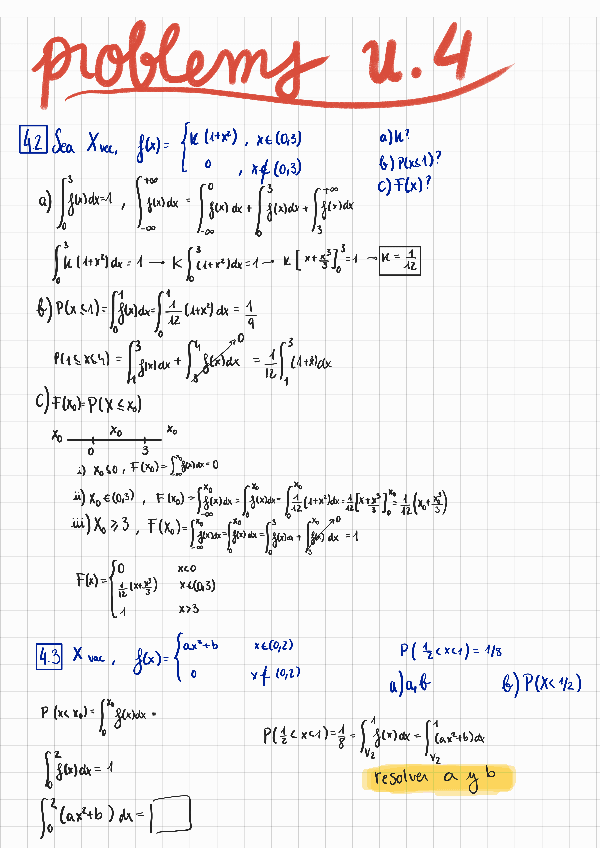 problems u.4
4.2 Sea X vac, f(x) = { K(1+x²), x∈(0,3)
0, x∉(0,3)
a) K?
b) P(x≤1)?
c) F(x)?
a) ∫₀³ f(x)dx=1, ∫_{-∞}^{+∞} f(x)dx = ∫_{-∞}^{0} f(x)dx + ∫₀³ f(x)dx + ∫₃^{+∞} f(x)dx
∫₀³ K(1+x²)dx = 1 → K ∫₀³ (1+x²)dx=1 → K [x+x³/3]₀³=1 → K = 1/12
b) P(x≤1)=∫₀¹ f(x)dx=∫₀¹ 1/12 (1+x²)dx = 1/9
P(1≤x≤4) = ∫₁³ f(x)dx + ∫₃⁴ f(x)dx → 0 = 1/12 ∫₁³ (1+x²)dx
c) F(x₀)=P(X≤x₀)
x₀ x₀ x₀
0 3
i) x₀≤0, F(x₀)=∫_{-∞}^{x₀} f(x)dx=0
ii) x₀∈(0,3), F(x₀)=∫_{-∞}^{x₀} f(x)dx=∫₀^{x₀} f(x)dx=∫₀^{x₀} 1/12 (1+x²)dx=1/12 [x+x³/3]₀^{x₀}=1/12 (x₀+x₀³/3)
iii) X₀≥3, F(x₀)=∫_{-∞}^{x₀} f(x)dx=∫₀^{x₀} f(x)dx=∫₀³ f(x)dx+∫₃^{x₀} f(x)dx → 0 = 1
F(x)={ 0 x<0
1/12 (x+x³/3) x∈(0,3)
1 x>3
4.3 X vac, f(x)={ ax²+b x∈(0,2)
0 x∉(0,2)
P(1/2<x<1)=1/8
a) a,b b) P(X<1/2)
P(x<x₀)=∫₀^{x₀} f(x)dx=
P(1/2<x<1)=1/8=∫_{1/2}^{1} f(x)dx=∫_{1/2}^{1} (ax²+b)dx
∫₀² f(x)dx=1
resolver a y b
∫₀² (ax²+b)dx=